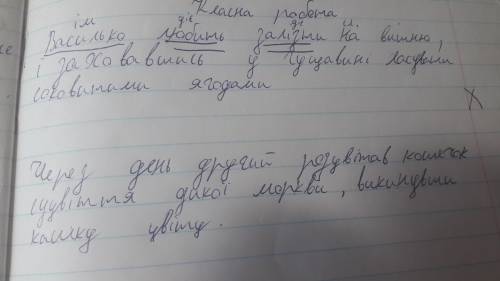 Класна робота
ім діє діє
Василько любить залізти на вишню,
і заховавшись у гущавині ласувати
соковитими ягодами
Через день другий розцвітав кошичок
суцвіття дикої моркви, викинувши
кошичку цвіту.